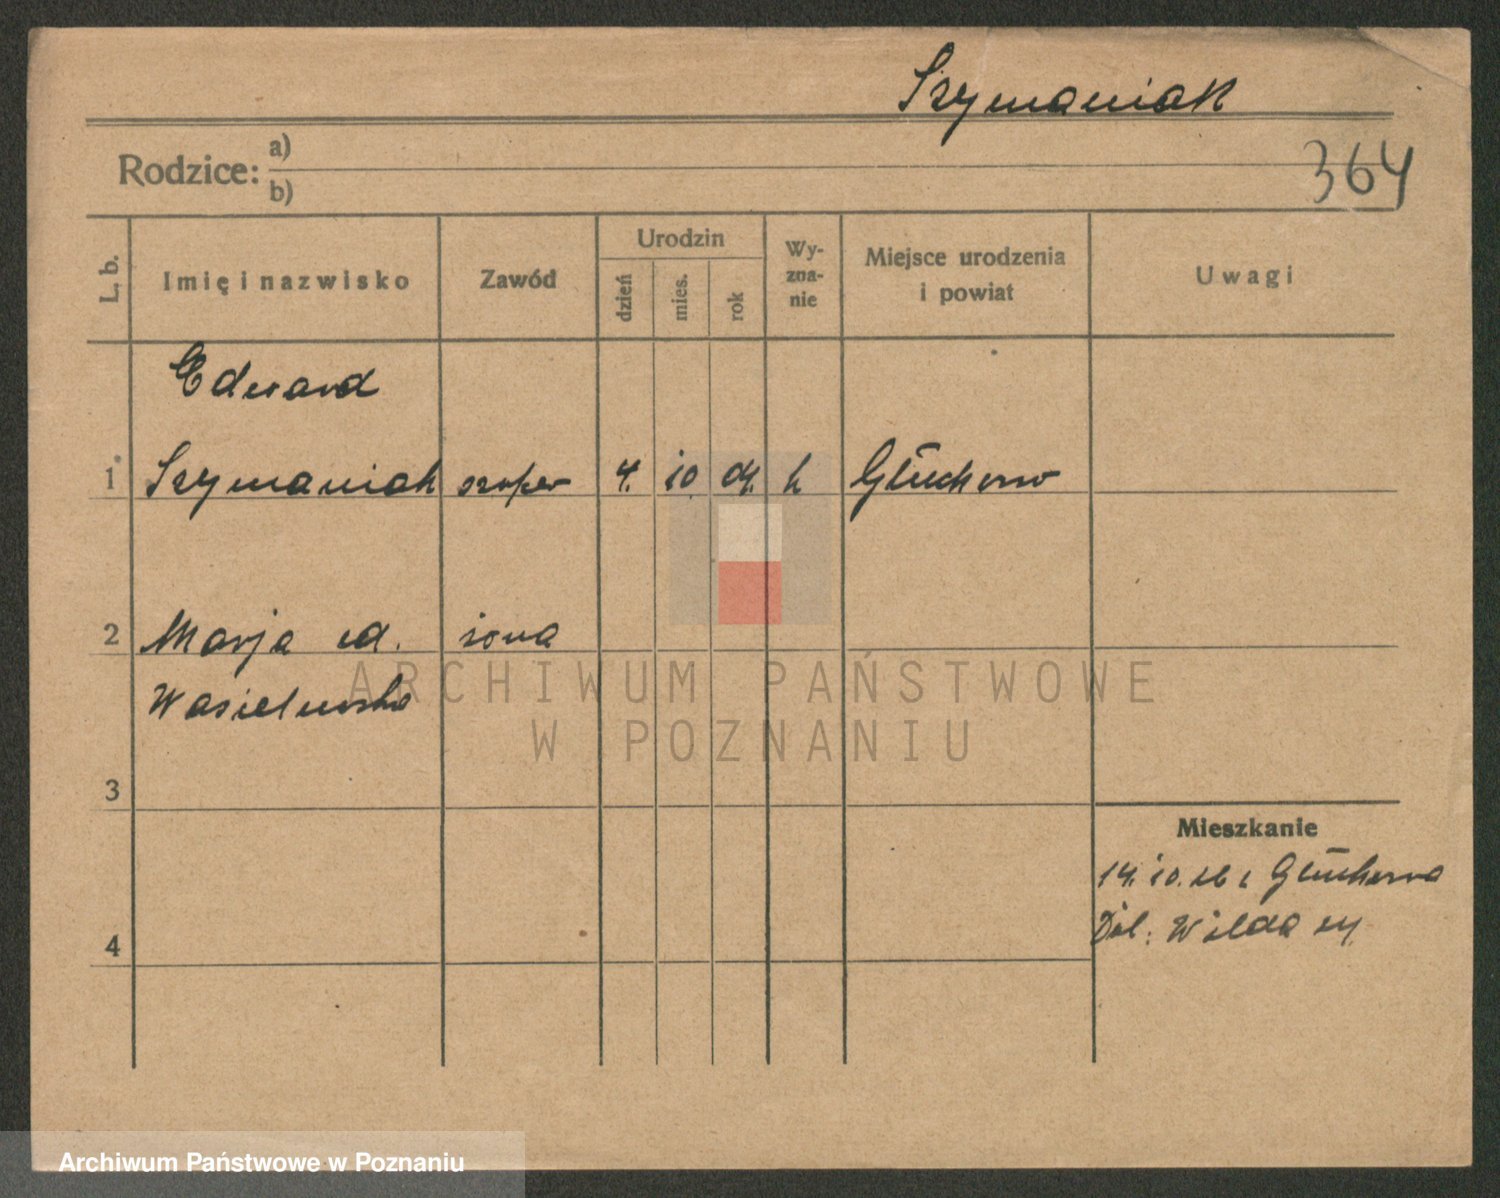 Szymaniak
364
Rodzice: a)
b)
L. b.
Imię i nazwisko
Zawód
Urodzin
dzień
mies.
rok
Wy-
zna-
nie
Miejsce urodzenia
i powiat
Uwagi
Edward
1 Szymaniak szofer 4. 10 04. k Głuchowo
2 Marja żona
3
4
Mieszkanie
14. 10. 26 z Głuchowa
Wilda
ARCHIWUM PAŃSTWOWE
W POZNANIU
Archiwum Państwowe w Poznaniu